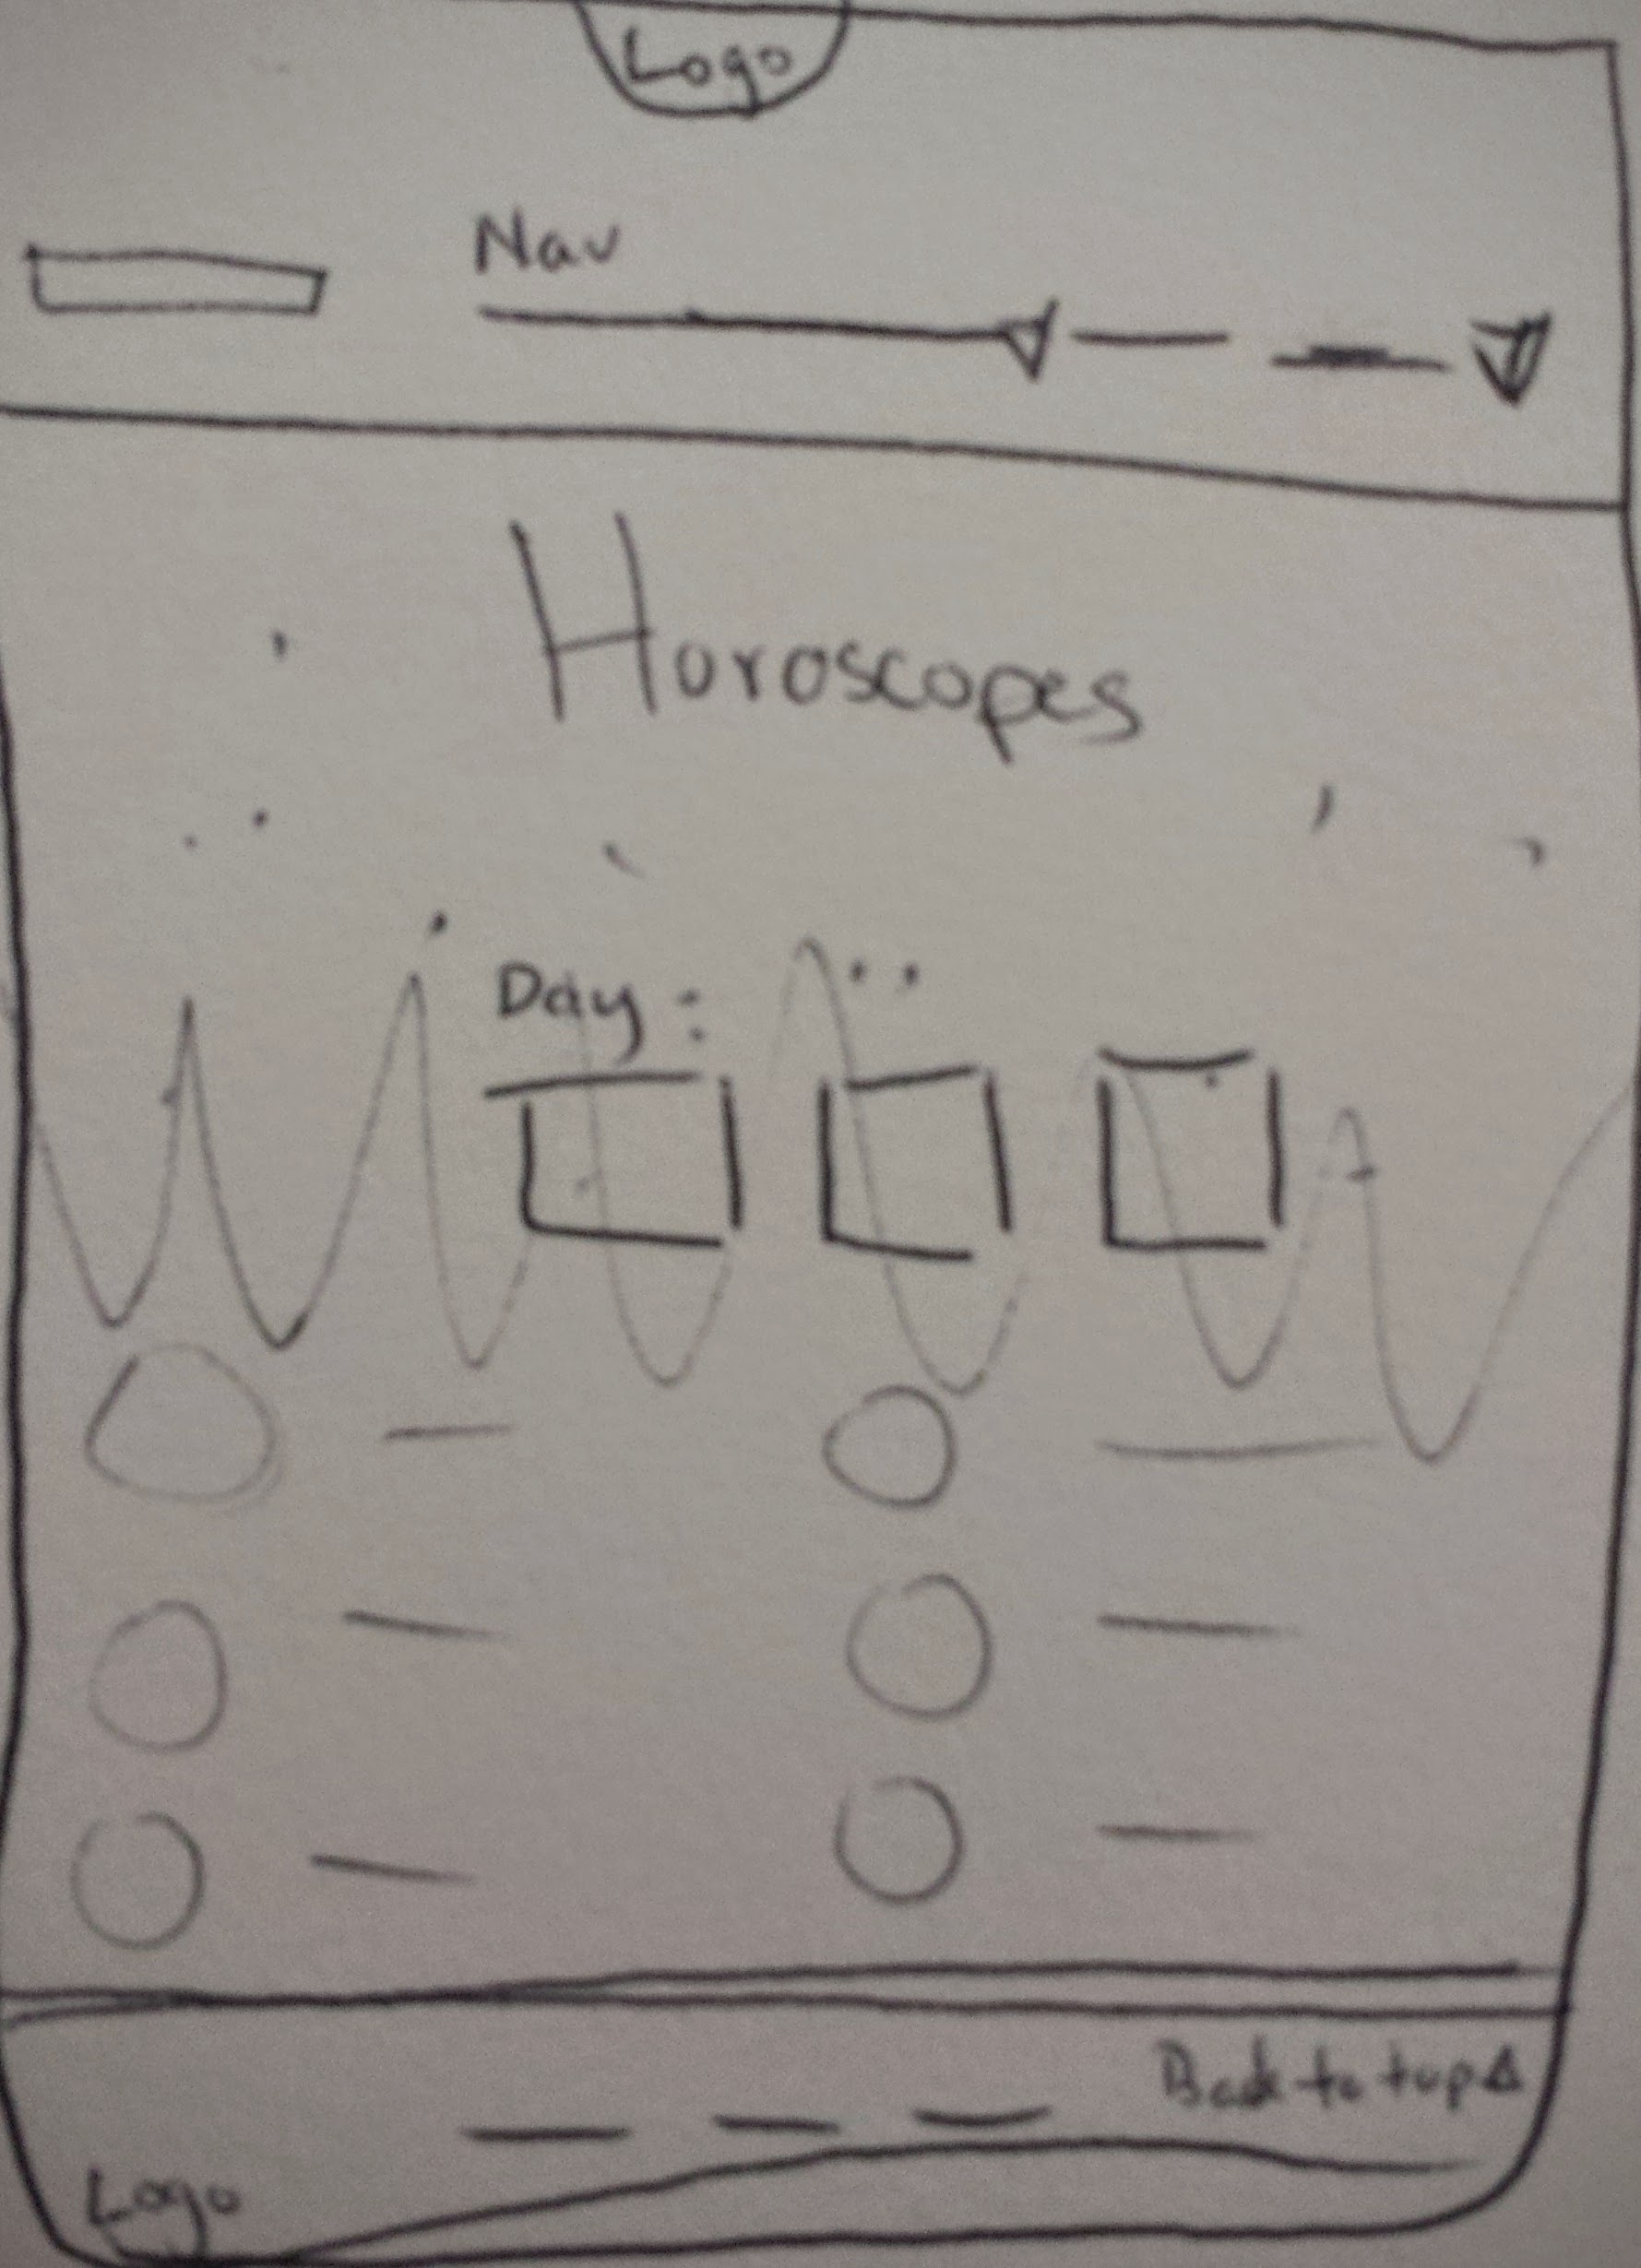 Logo
Nav
Horoscopes
Day :
Back to top
Logo